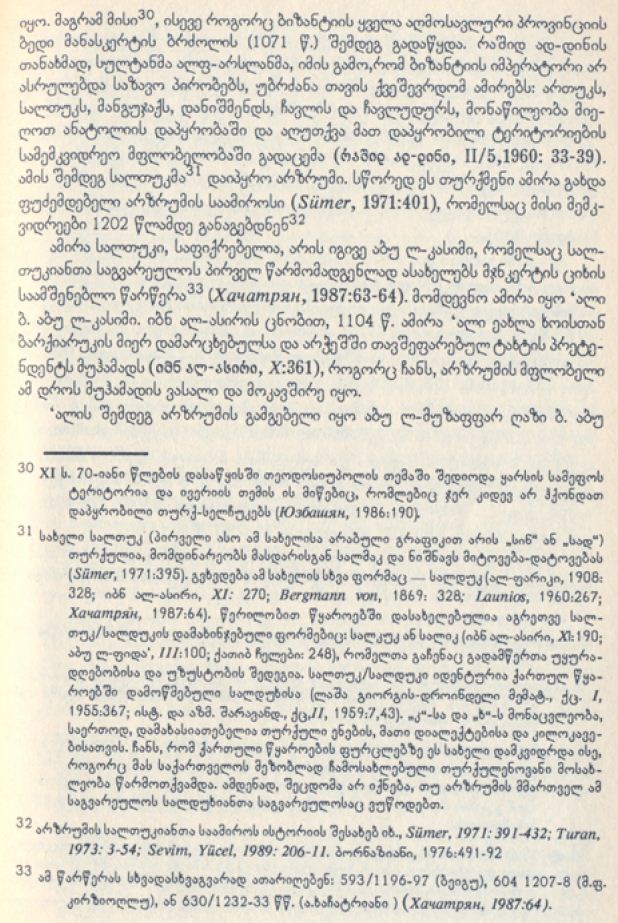 იყო. მაგრამ მისი30, ისევე როგორც ბიზანტიის ყველა აღმოსავლური პროვინციის
ბედი მანასკერტის ბრძოლის (1071 წ.) შემდეგ გადაწყდა. რაშიდ ად-დინის
თანახმად, სულტანმა ალფ-არსლანმა, იმის გამო,რომ ბიზანტიის იმპერატორი არ
ასრულებდა საზავო პირობებს, უბრძანა თავის ქვეშევრდომ ამირებს: ართუკს,
სალთუკს, მანგუჯაქს, დანიშმენდს, ჩავლის და ჩავლუდურს, მონაწილეობა მიე-
ღოთ ანატოლიის დაპყრობაში და აღუთქვა მათ დაპყრობილი ტერიტორიების
სამემკვიდრეო მფლობელობაში გადაცემა (რაშიდ ად-დინი, II/5,1960: 33-39).
ამის შემდეგ სალთუკმა31 დაიპყრო არზრუმი. სწორედ ეს თურქმენი ამირა გახდა
ფუძემდებელი არზრუმის საამიროსი (Sümer, 1971:401), რომელსაც მისი მემკ-
ვიდრეები 1202 წლამდე განაგებდნენ32
ამირა სალთუკი, საფიქრებელია, არის იგივე აბუ ლ-კასიმი, რომელსაც სალ-
თუკიანთა საგვარეულოს პირველ წარმომადგენლად ასახელებს მჯნკერტის ციხის
საამშენებლო წარწერა33 (Хачатрян, 1987:63-64). მომდევნო ამირა იყო ‘ალი
ბ. აბუ ლ-კასიმი. იბნ ალ-ასირის ცნობით, 1104 წ. ამირა ‘ალი ეახლა ხოისთან
ბარქიარუკის მიერ დამარცხებულსა და არჭეშში თავშეფარებულ ტახტის პრეტე-
ნდენტს მუჰამადს (იბნ ალ-ასირი, X:361), როგორც ჩანს, არზრუმის მფლობელი
ამ დროს მუჰამადის ვასალი და მოკავშირე იყო.
‘ალის შემდეგ არზრუმის გამგებელი იყო აბუ ლ-მუზაფფარ ღაზი ბ. აბუ
30 XI ს. 70-იანი წლების დასაწყისში თეოდოსიუპოლის თემაში შედიოდა ყარსის სამეფოს
ტერიტორია და ივერიის თემის ის მიწებიც, რომლებიც ჯერ კიდევ არ ჰქონდათ
დაპყრობილი თურქ-სელჩუკებს (Юзбашян, 1986:190).
31 სახელი სალთუკ (პირველი ასო ამ სახელისა არაბული გრაფიკით არის „სინ“ ან „სად“)
თურქულია, მომდინარეობს მასდარისგან სალმაკ და ნიშნავს მიტოვება-დატოვებას
(Sümer, 1971:395). გვხვდება ამ სახელის სხვა ფორმაც — სალდუკ (ალ-ფარიკი, 1908:
328; იბნ ალ-ასირი, XI: 270; Bergmann von, 1869: 328; Launios, 1960:267;
Хачатрян, 1987:64). წერილობით წყაროებში დასახელებულია აგრეთვე სალ-
თუკ/სალდუკის დამახინჯებული ფორმებიც: სალკუკ ან სალიკ (იბნ ალ-ასირი, XI:190;
აბუ ლ-ფიდა’, III:100; ქათიბ ჩელები: 248), რომელთა გაჩენაც გადამწერთა უყურა-
დღებობისა და უზუსტობის შედეგია. სალთუკ/სალდუკი იდენტურია ქართულ წყა-
როებში დამოწმებული სალდუხისა (ლაშა გიორგის-დროინდელი მემატ., ქც. I,
1955:367; ისტ. და აზმ. შარავანდ., ქც,II, 1959:7,43). „კ“-სა და „ხ“-ს მონაცვლეობა,
საერთოდ, დამახასიათებელია თურქული ენების, მათი დიალექტებისა და კილოკავე-
ბისათვის. ჩანს, რომ ქართული წყაროების ფურცლებზე ეს სახელი დამკვიდრდა ისე,
როგორც მას საქართველოს მეზობლად ჩამოსახლებული თურქულენოვანი მოსახ-
ლეობა წარმოთქვამდა. ამდენად, შეცდომა არ იქნება, თუ არზრუმის მმართველ ამ
საგვარეულოს სალდუხიანთა საგვარეულოსაც ვუწოდებთ.
32 არზრუმის სალთუკიანთა საამიროს ისტორიის შესახებ იხ., Sümer, 1971: 391-432; Turan,
1973: 3-54; Sevim, Yücel, 1989: 206-11. ბორნაზიანი, 1976:491-92
33 ამ წარწერას სხვადასხვაგვარად ათარიღებენ: 593/1196-97 (ბეიგუ), 604 1207-8 (მ.ფ.
კირზიოღლუ), ან 630/1232-33 წწ. (ა.ხაჩატრიანი ) (Хачатрян, 1987:64).